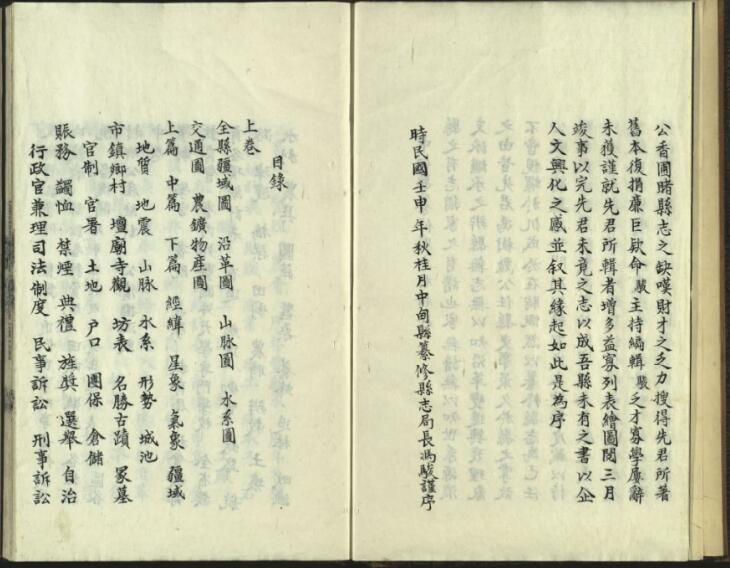 公香圃睹縣志之缺嘆財才之乏力搜得先君所著
舊本復捐廉巨欵命駿主持編輯駿乏才寡學屢辭
未獲謹就先君所輯者增多益寡列表繪圖閱三月
竣事以完先君未竟之志以成吾縣未有之書以企
人文興化之感並叙其緣起如此是為序
時民國壬申年秋桂月中甸縣纂修縣志局長馮駿謹序
目錄
上卷
全縣疆域圖 沿革圖 山脉圖 水系圖
交通圖 農鑛物産圖
上篇 中篇 下篇 經緯 星象 氣象 疆域
地質 地震 山脉 水系 形勢 城池
市鎮鄉村 壇廟寺觀 坊表 名勝古蹟 冢墓
官制 官署 土地 户口 團保 倉儲
賬務 蠲恤 禁煙 典禮 旌奬 選舉 自治
行政官兼理司法制度 民事訴訟 刑事訴訟